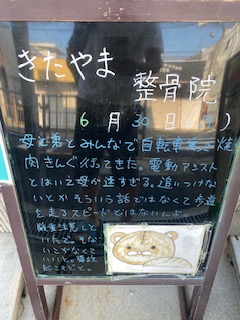 きたやま
整骨院
6月30日( )
母と弟とみんなで自転車で焼
肉きんぐ行ってきた。電動アシスト
とはいえ母が速すぎる。追いつけな
いとかそういう話ではなくて歩道
を走るスピードではないんよ
厳重注意して
いいと。事故